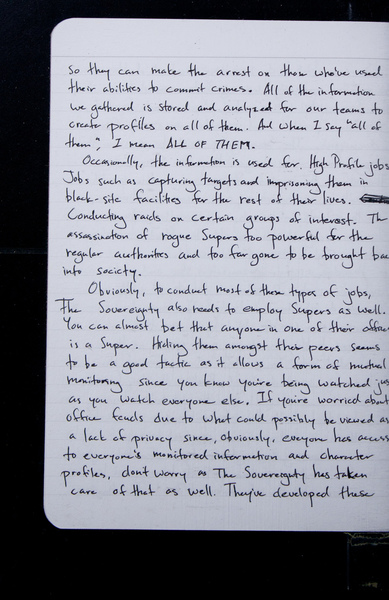 so they can make the arrest on those who've used
their abilities to commit crimes. All of the information
we gathered is stored and analyzed for our teams to
create profiles on all of them. And when I say "all of
them", I mean ALL OF THEM.
Occasionally, the information is used for. High Profile jobs
Jobs such as capturing targets and imprisoning them in
black-site facilities for the rest of their lives.
Conducting raids on certain groups of interest. Th
assassination of rogue Supers too powerful for the
regular authorities and too far gone to be brought bac
into society.
Obviously, to conduct most of these types of jobs,
The Sovereignty also needs to employ Supers as well.
You can almost bet that anyone in one of their office
is a Super. Hiding them amongst their peers seems
to be a good tactic as it allows a form of mutual
monitoring since you know you're being watched jus
as you watch everyone else. If you're worried about
office feuds due to what could possibly be viewed as
a lack of privacy since, obviously, everyone has access
to everyone's monitored information and character
profiles, don't worry as The Sovereignty has taken
care of that as well. They've developed these